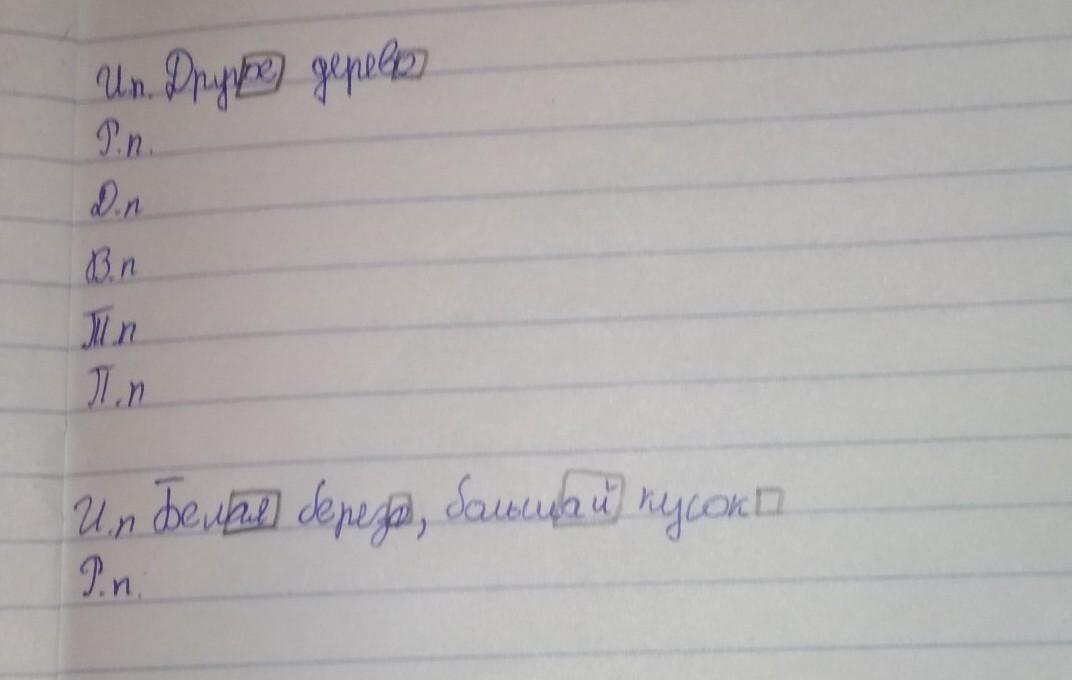 Ип. Другое дерево
Р.п.
Д.п
В.п
Т.п
П.п
И.п Белая береза, большай кусок
Р.п.